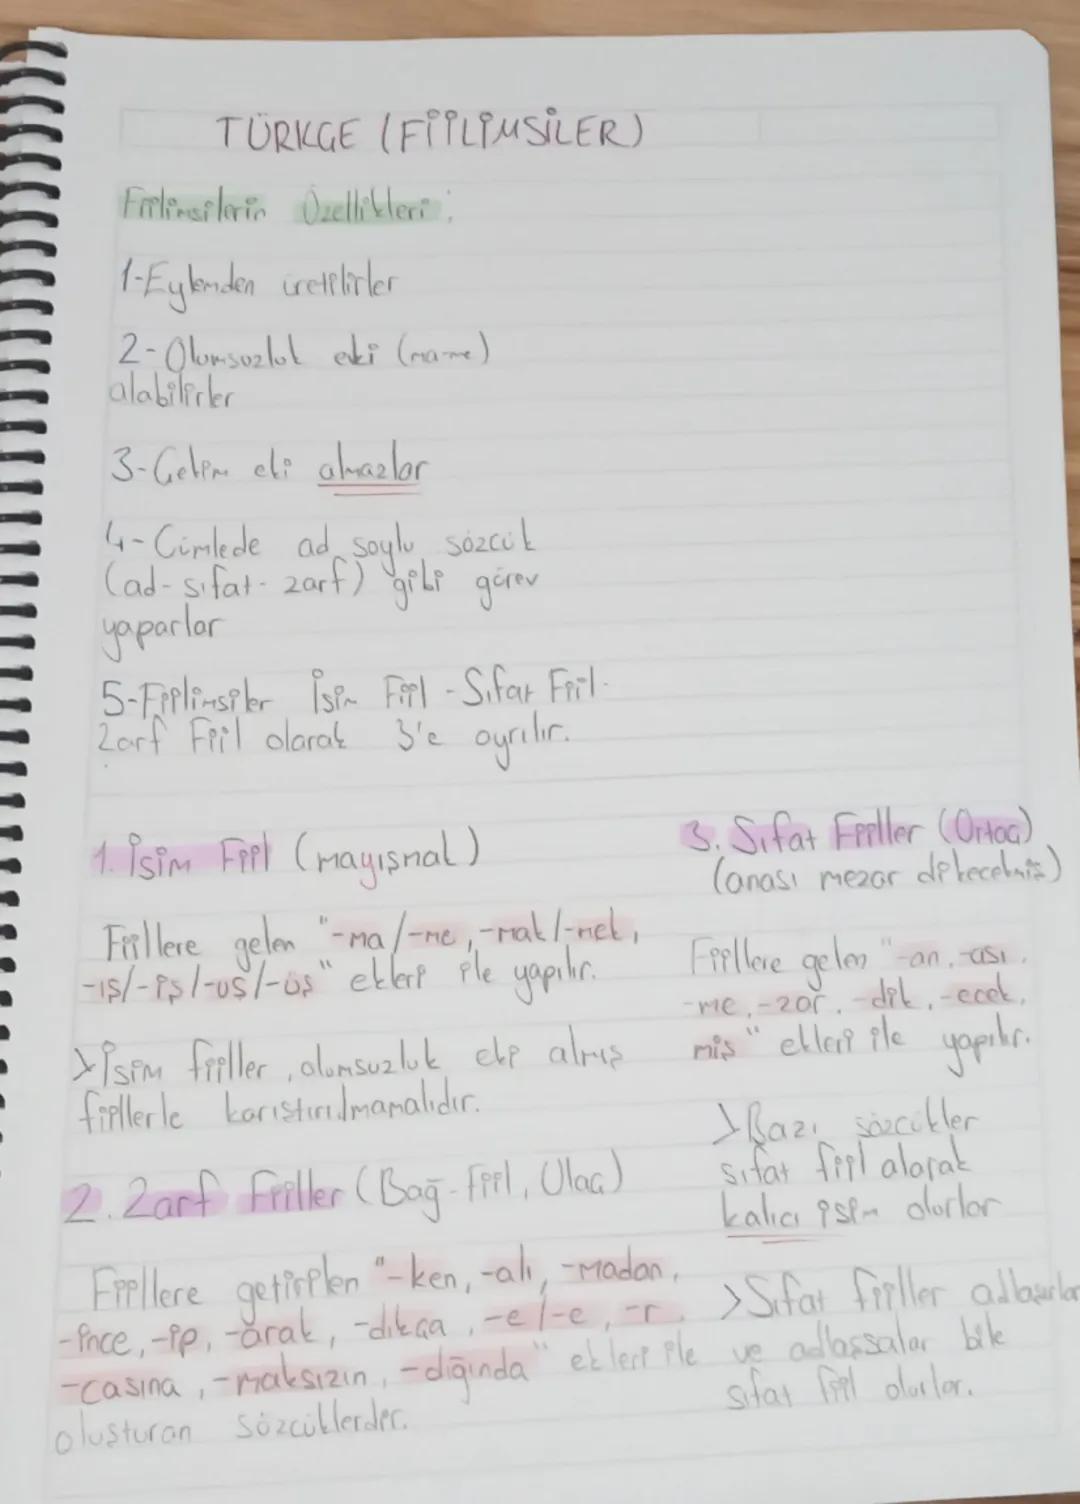 TÜRKÇE (FİİLİMSİLER)
Fiilimsilerin Özellikleri:
1-Eylemden üretilirler
2-Olumsuzluk eki (ma-me)
alabilirler
3-Çekim eki almazlar
4-Cümlede ad soylu sözcük
(ad-sıfat-zarf) gibi görev
yaparlar
5-Fiilimsiler İsim Fiil-Sıfat Fiil-
Zarf Fiil olarak 3'e ayrılır.
1. İsim Fiil (mayışmak)
Fiillere gelen "-ma/-me, -mak/-mek,
-ış/-iş/-uş/-üş" ekleri ile yapılır.
>İsim fiiller, olumsuzluk eki almış
fiillerle karıştırılmamalıdır.
2. Zarf Fiiller (Bağ-Fiil, Ulaç)
Fiillere getirilen "-ken, -alı, -madan,
-ince, -ip, -arak, -dıkça, -e/-e, -r,
-casına, -maksızın, -dığında" ekleri ile
oluşturan sözcüklerdir.
3. Sıfat Fiiller (Ortaç)
(anası mezar dikecekmiş)
Fiillere gelen "-an, -ası,
-me, -zar, -dik, -ecek,
miş" ekleri ile yapılır.
>Bazı sözcükler
sıfat fiil alarak
kalıcı isim olurlar
>Sıfat fiiller adlaşırlar
ve adlaşsalar bile
sıfat fiil olurlar.